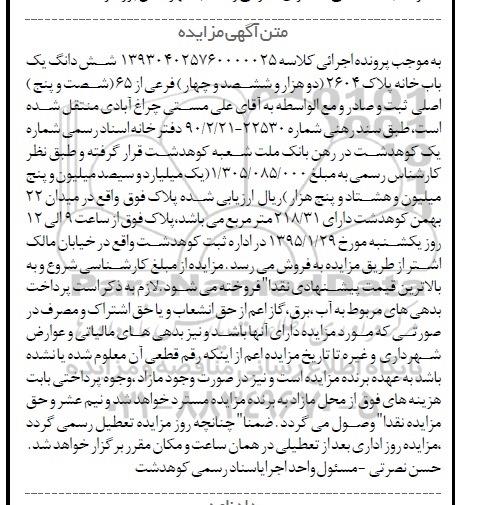 متن آگهی مزایده
به موجب پرونده اجرائی کلاسه ۱۳۹۳۰۴۰۲۵۷۶۰۰۰۰۰۲۵ شش دانگ یک
باب خانه پلاک ۲۶۰۴ (دو هزار و ششصد و چهار) فرعی از ۶۵ (شصت و پنج)
اصلی ثبت و صادر و مع الواسطه به آقای علی مستی چراغ آبادی منتقل شده
است، طبق سند رهنی شماره ۲۲۵۳۰-۹۰/۲/۲۱ دفتر خانه اسناد رسمی شماره
یک کوهدشت در رهن بانک ملت شعبه کوهدشت قرار گرفته و طبق نظر
کارشناس رسمی به مبلغ ۱/۳۰۵/۰۸۵/۰۰۰ (یک میلیارد و سیصد میلیون و پنج
میلیون و هشتاد و پنج هزار) ریال ارزیابی شده پلاک فوق واقع در میدان ۲۲
بهمن کوهدشت دارای ۲۱۸/۳۱ متر مربع می باشد، پلاک فوق از ساعت ۹ الی ۱۲
روز یکشنبه مورخ ۱۳۹۵/۱/۲۹ در اداره ثبت کوهدشت واقع در خیابان مالک
اشتر از طریق مزایده به فروش می رسد. مزایده از مبلغ کارشناسی شروع و به
بالاترین قیمت پیشنهادی نقدا" فروخته می شود. لازم به ذکر است پرداخت
بدهی های مربوط به آب، برق، گاز اعم از حق انشعاب و یا حق اشتراک و مصرف در
صورتی که مورد مزایده دارای آنها باشد و نیز بدهی های مالیاتی و عوارض
شهرداری و غیره تا تاریخ مزایده اعم از اینکه رقم قطعی آن معلوم شده یا نشده
باشد به عهده برنده مزایده است و نیز در صورت وجود مازاد، وجوه پرداختی بابت
هزینه های فوق از محل مازاد به برنده مزایده مسترد خواهد شد و نیم عشر و حق
مزایده نقدا" وصول می گردد. ضمنا" چنانچه روز مزایده تعطیل رسمی گردد
،مزایده روز اداری بعد از تعطیلی در همان ساعت و مکان مقرر برگزار خواهد شد.
حسن نصرتی -مسئول واحد اجرایاسناد رسمی کوهدشت